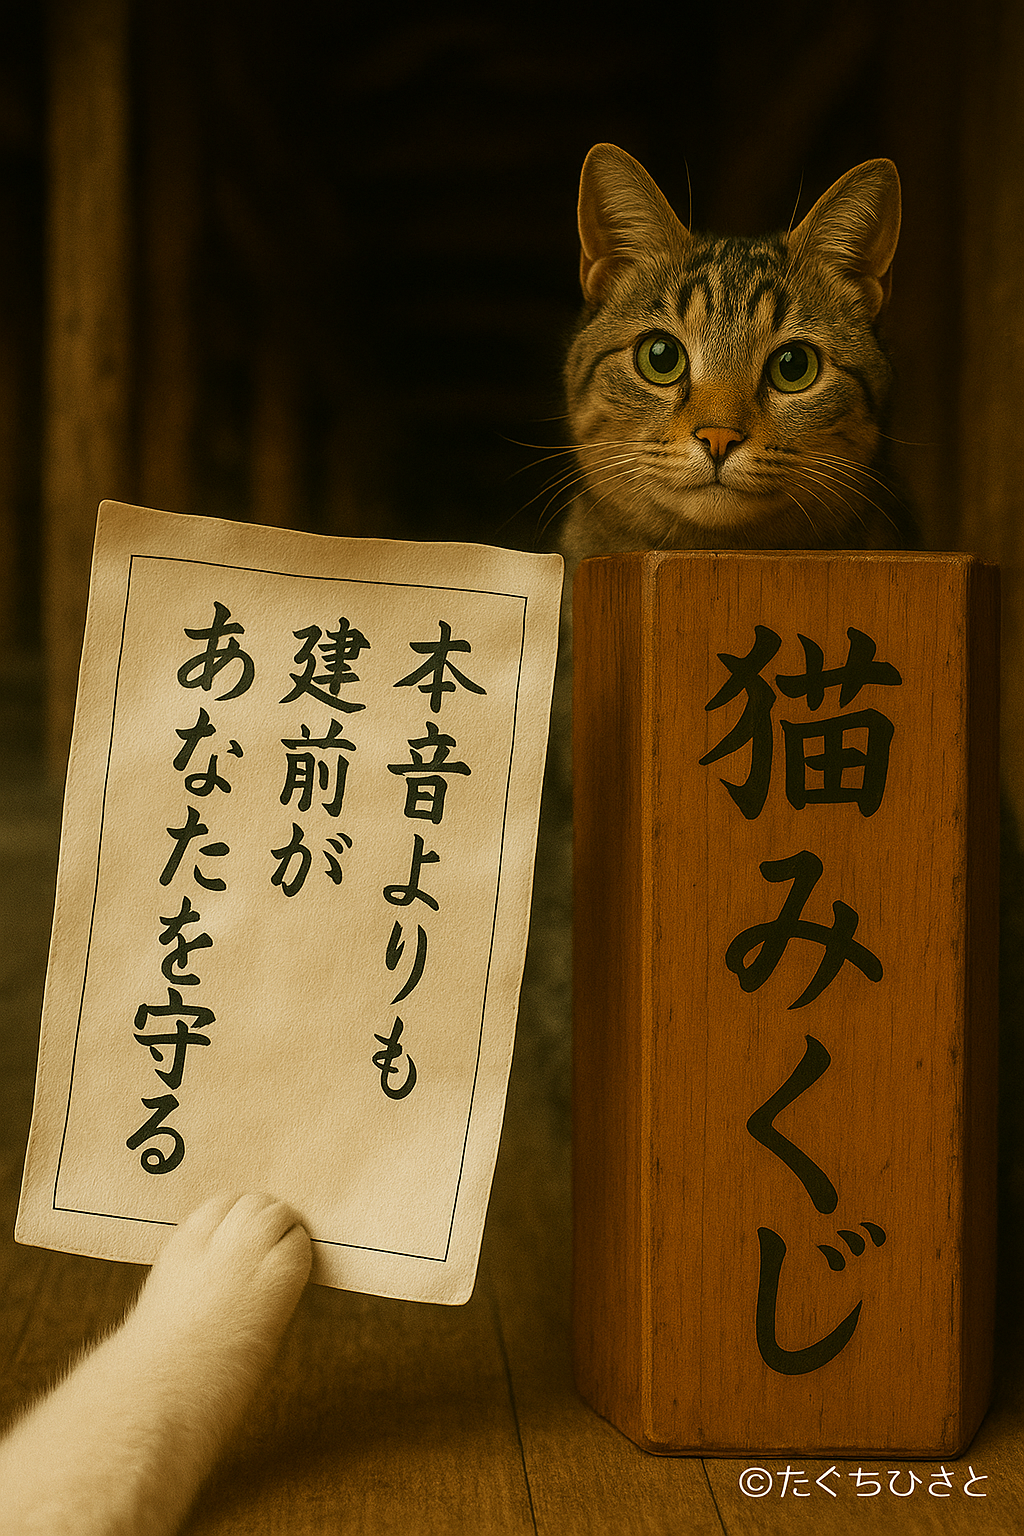 本音よりも
建前が
あなたを守る
猫みくじ
©たぐちひさと